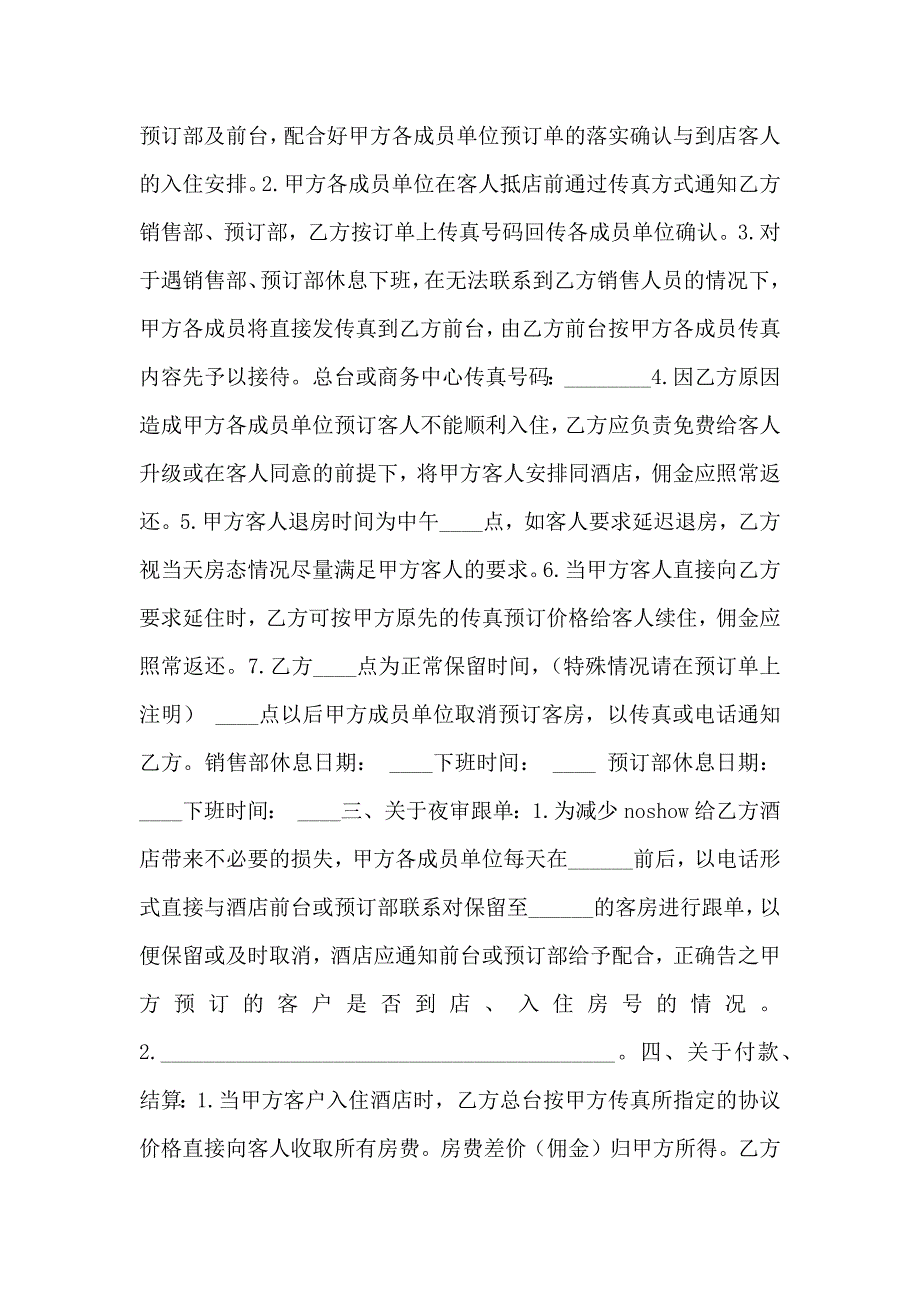 预订部及前台，配合好甲方各成员单位预订单的落实确认与到店客人
的入住安排。2.甲方各成员单位在客人抵店前通过传真方式通知乙方
销售部、预订部，乙方按订单上传真号码回传各成员单位确认。3.对
于遇销售部、预订部休息下班，在无法联系到乙方销售人员的情况下，
甲方各成员将直接发传真到乙方前台，由乙方前台按甲方各成员传真
内容先予以接待。总台或商务中心传真号码：________4.因乙方原因
造成甲方各成员单位预订客人不能顺利入住，乙方应负责免费给客人
升级或在客人同意的前提下，将甲方客人安排同酒店，佣金应照常返
还。5.甲方客人退房时间为中午____点，如客人要求延迟退房，乙方
视当天房态情况尽量满足甲方客人的要求。6.当甲方客人直接向乙方
要求延住时，乙方可按甲方原先的传真预订价格给客人续住，佣金应
照常返还。7.乙方____点为正常保留时间，（特殊情况请在预订单上
注明） ____点以后甲方成员单位取消预订客房，以传真或电话通知
乙方。销售部休息日期： ____下班时间： ____ 预订部休息日期：
____下班时间： ____三、关于夜审跟单：1.为减少 noshow 给乙方酒
店带来不必要的损失，甲方各成员单位每天在______前后，以电话形
式直接与酒店前台或预订部联系对保留至______的客房进行跟单，以
便保留或及时取消，酒店应通知前台或预订部给予配合，正确告之甲
方预订的客户是否到店、入住房号的情况。
2.__________________________________________。四、关于付款、
结算：1.当甲方客户入住酒店时，乙方总台按甲方传真所指定的协议
价格直接向客人收取所有房费。房费差价（佣金）归甲方所得。乙方